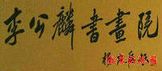 李公麟書畫院